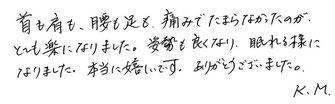 首も肩も、腰も足も、痛みでたまらなかったのが、
とても楽になりました。姿勢も良くなり、眠れる様に
なりました。本当に嬉しいです。ありがとうございました。
K.M.